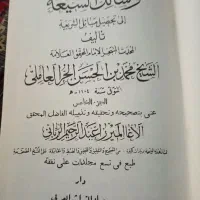 وسائل الشيعة
إلى تحصيل مسائل الشريعة
تأليف
المحدث المتبحر الإمام المحقق العلامة
الشيخ محمد بن الحسن الحر العاملي
المتوفى سنة ١١٠٤ هـ
الجزء الخامس
عنى بتصحيحه وتحقيقه وتذييله الفاضل المحقق
الميرزا عبد الرحيم الرباني
طبع في تسع مجلدات على نفقة
دار